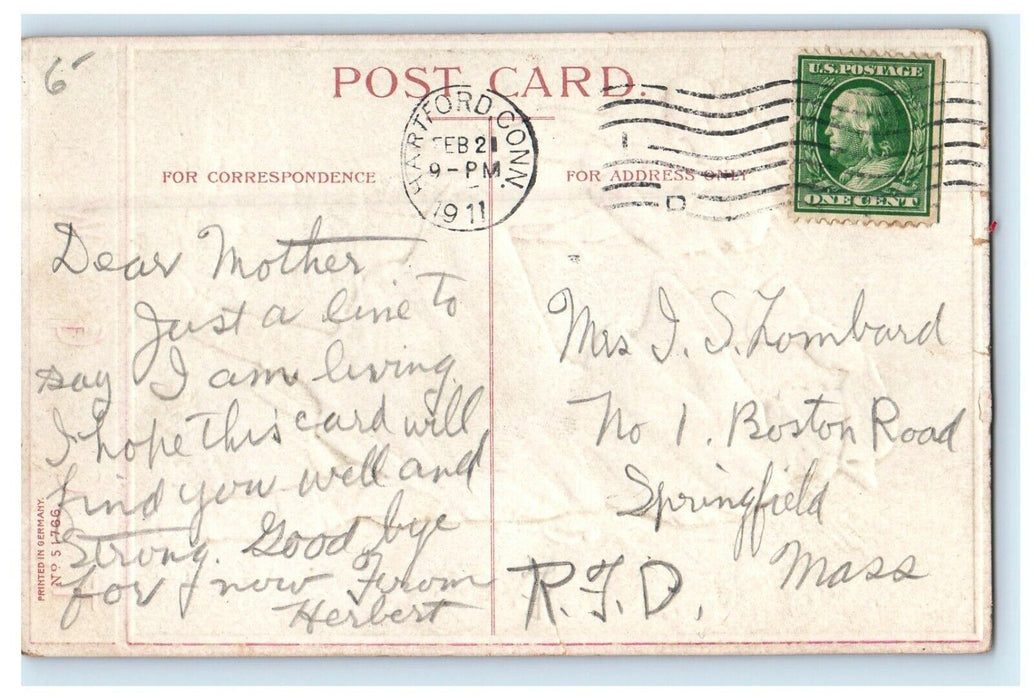 6
POST CARD.
HARTFORD, CONN.
FEB 21
9-PM
1911
U.S. POSTAGE
ONE CENT
FOR CORRESPONDENCE
FOR ADDRESS ONLY
Dear Mother
Just a line to
say I am living
I hope this card will
find you well and
strong. Good bye
for now From
Herbert
Mrs I. S. Lombard
No 1. Boston Road
Springfield
Mass
R.F.D.
PRINTED IN GERMANY.
No 51766